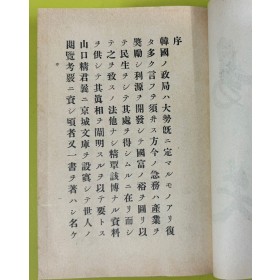 序
韓國ノ政局ハ大勢旣ニ定マルモノアリ復
タ多ク言フヲ須井ス方今ノ急務ハ產業ヲ
奬勵シ利源ヲ開發シテ國富ノ裕ヲ圖リ以
テ民生ヲシテ其處ヲ得シムルニ在リ而シ
テ之ヲ致スノ法他ナシ精覈該博ナル資料
ヲ供シテ其眞相ヲ闡明スルヲ以テ要トス
山口精君曩ニ京城文庫ヲ設寘シテ世人ノ
閱覽考覈ニ資シ頃者又一書ヲ著ハシ名ケ